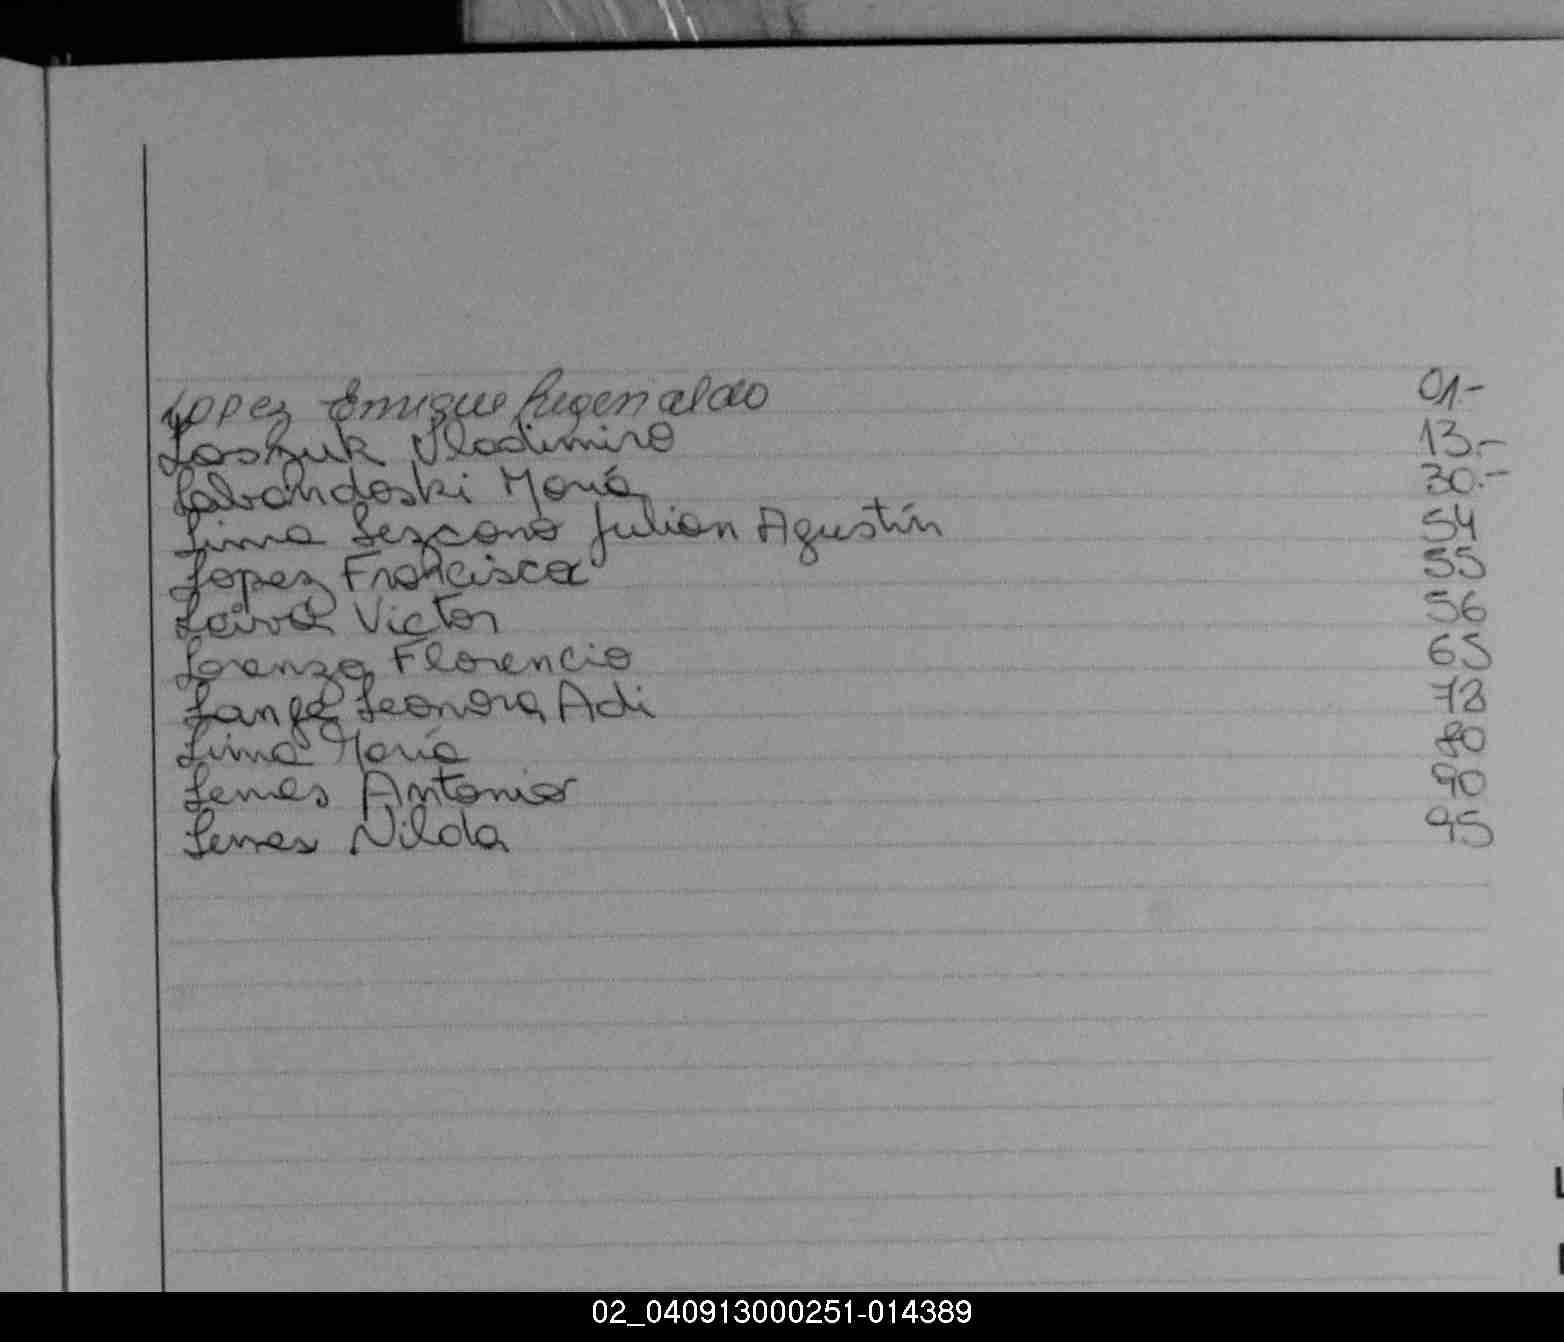 Lopez Enrique Regenaldo 01-
Loszuk Vladimiro 13.-
Labandoski María 30.-
Lima Lezcano Julian Agustín 54
Lopez Francisca 55
Leiva Victor 56
Lorenzo Florencio 65
Lange Leonora Adi 78
Lima María 80
Lemes Antonio 90
Lemes Nilda 95
L
02_040913000251-014389